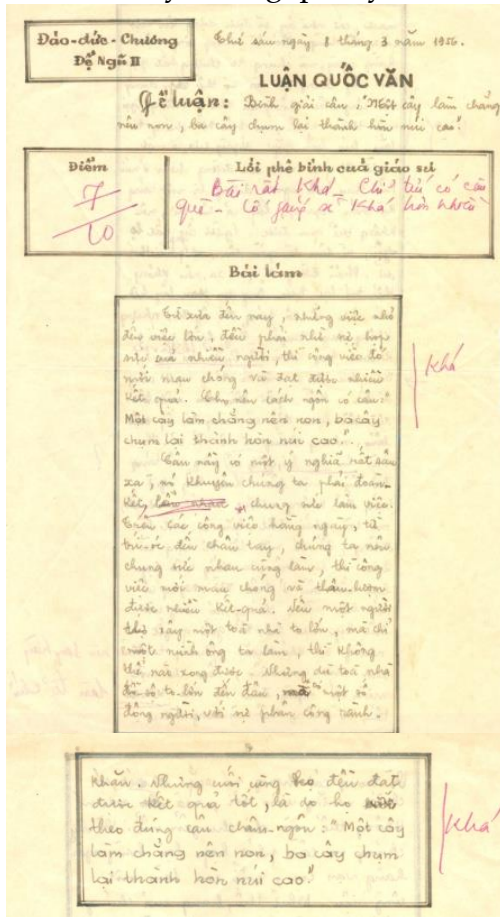 Đào-đức-Chương
Đệ Ngũ II
Thứ sáu ngày 8 tháng 3 năm 1956.
LUẬN QUỐC VĂN
Đề luận: Bình giải câu: "Một cây làm chẳng
nên non, ba cây chụm lại thành hòn núi cao."
Điểm
Lời phê bình của giáo sư
7
10
Bài rất Khá - Chỉ tử có cần
quê - Cố gắng sẽ Khá hơn
Bài làm
Từ xưa đến nay, những việc nhỏ
đến việc lớn, đều phải nhờ sự hợp
sức của nhiều người, thì công việc đó
mới mau chóng và đạt được nhiều
kết quả. Cho nên cách ngôn có câu "
Một cây làm chẳng nên non, ba cây
chụm lại thành hòn núi cao".
Câu này có một ý nghĩa rất sâu
xa, nó khuyên chúng ta phải đoàn-
kết, lẫn nhau, chung sức làm việc.
Trong các công việc hằng ngày, từ
trí-óc đến chân tay, chúng ta nên
chung sức nhau cùng làm, thì công
việc mới mau chóng và thâu-lượm
được nhiều kết-quả. Nếu một người
thợ xây một toà nhà to lớn, mà chỉ
một mình ông ta làm, thì không
thể nào xong được. Nhưng dù toà nhà
đồ-sộ to-lớn đến đâu, mà một số
đông người, với sự phân công rành.
Khá
khăn. Nhưng cuối cùng họ đều đạt
được kết quả tốt, là do họ
theo đúng câu châm-ngôn: "Một cây
làm chẳng nên non, ba cây chụm
lại thành hòn núi cao."
Khá